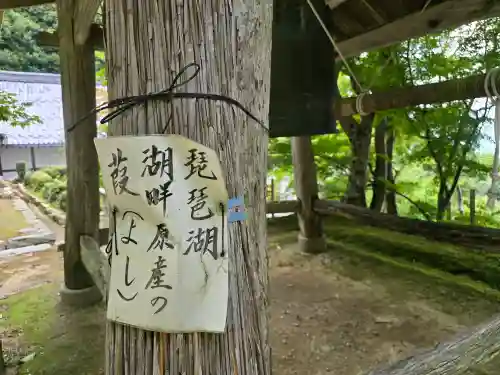 琵琶湖
湖畔原産の
葭(よし)